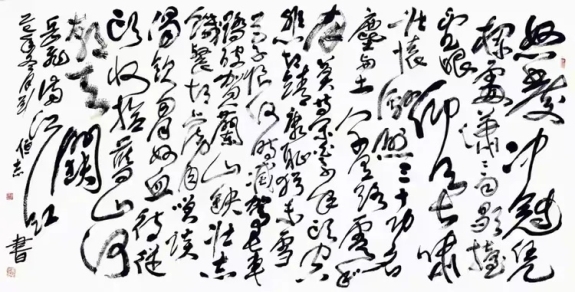 怒发冲冠凭
栏处潇潇雨歇抬
望眼仰天长啸
壮怀激烈三十功名
尘与土八千里路云和
月莫等闲白了少年头空
悲切靖康耻犹未雪
臣子恨何时灭驾长车
踏破贺兰山缺壮志
饥餐胡虏肉笑谈
渴饮匈奴血待从
头收拾旧山河
朝天阙
岳飞满江红
伯志书